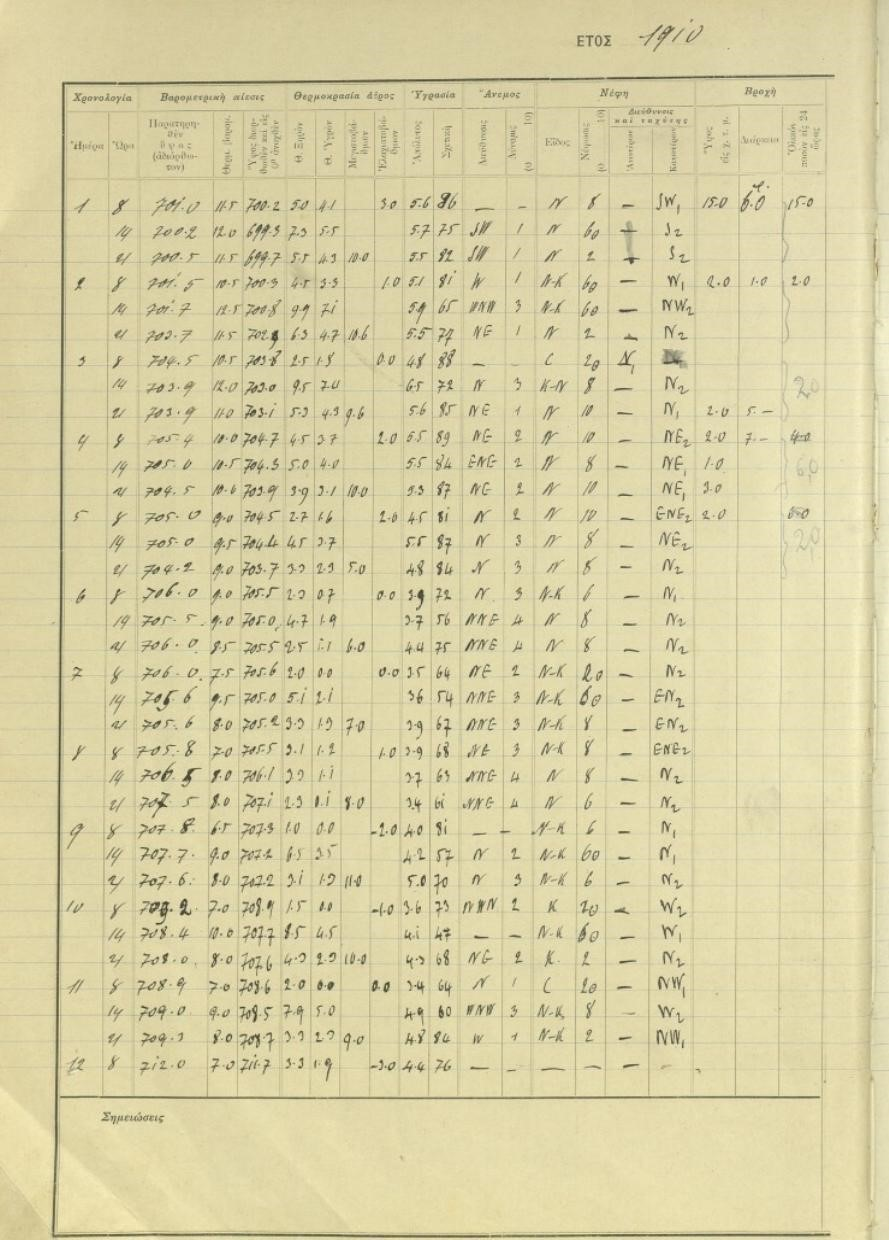 ΕΤΟΣ 1910
Χρονολογία Βαρομετρικὴ πίεσις Θερμοκρασία ἀέρος Ὑγρασία Ἄνεμος Νέφη Βροχή
Διεύθυνσις καὶ ταχύτης
Ἡμέρα Ὥρα Παρατηρηθὲν ὕψος (ἀδιόρθωτον) Θερμ. βαρομ. Θ. Ξηρόν Θ. Ὑγρόν Ἀπόλυτος Σχετική Διεύθυνσις Δύναμις (0 10) Εἶδος Νέφωσις (0 10) Ἀνωτέρων Κατωτέρων Ὕψος εἰς χ. τ. μ. Διάρκεια Ὁλικὸν ποσὸν εἰς 24 ὥρας
1 8 701.0 11.5 700.2 5.0 4.1 3.0 5.6 86 — - N 8 — SW1 15.0 6.0 15.0
14 700.2 12.0 699.3 7.3 5.5 5.7 75 SW 1 N 60 S2
21 700.5 11.5 699.7 5.5 4.3 10.0 5.5 82 SW 1 N 2 S2
2 8 701.5 10.5 700.3 4.5 3.3 1.0 5.1 81 W 1 N-K 60 — W1 2.0 1.0 2.0
14 701.7 12.5 700.8 9.9 7.1 5.9 65 WNW 3 N-K 60 — NW2
21 703.7 11.5 6.3 4.7 10.6 5.5 77 NE 1 N 2 — N2
3 8 704.5 10.5 703.8 2.5 1.8 0.0 4.8 88 — C 20 N1
14 703.9 12.0 703.0 9.5 7.0 6.5 72 N 3 K-N 8 — N2 20
21 703.9 11.0 703.1 5.3 4.3 9.6 5.6 85 NE 1 N 10 — N1 2.0 5.—
4 8 705.4 10.0 704.7 4.5 3.7 2.0 5.5 89 NE 2 N 10 — NE2 2.0 7.— 4.0
14 705.0 10.5 704.3 5.0 4.0 5.5 84 ENE 2 N 8 — NE1 1.0 6.0
21 704.5 10.6 703.9 3.9 3.1 10.0 5.3 87 NE 2 N 10 — NE1 3.0
5 8 705.0 9.0 704.5 2.7 1.6 2.0 4.5 81 N 2 N 10 — ENE2 2.0
14 705.0 9.5 704.4 4.5 3.7 5.5 87 N 3 N 8 — NE2 20
21 704.2 9.0 703.7 3.3 2.3 5.0 4.8 84 N 3 N 8 — N2
6 8 706.0 9.0 705.5 2.3 0.7 0.0 3.9 72 N 3 N-K 6 — N1
14 705.5 9.0 705.0 4.7 1.9 3.7 56 NNE 4 N 8 — N2
21 706.0 8.5 705.5 2.5 1.1 6.0 4.4 75 NNE 4 N 8 — N2
7 8 706.0 7.5 705.6 2.0 0.0 0.0 3.5 64 NE 2 N-K 20 — N2
14 705.6 9.5 705.0 5.1 2.1 3.6 54 NNE 3 N-K 60 — EN2
21 705.6 8.0 705.2 3.3 1.3 7.0 3.9 67 NNE 3 N-K 8 — EN2
8 8 705.8 7.0 705.5 3.1 1.2 1.0 3.9 68 NE 3 N-K 8 — ENE2
14 706.5 8.0 706.1 3.3 1.1 3.7 63 NNE 4 N 8 — N2
21 707.5 8.0 707.1 2.3 0.1 8.0 3.4 61 NNE 4 N 6 — N2
9 8 707.8 6.5 707.3 1.0 0.0 -2.0 4.0 81 — — N-K 6 — N1
14 707.7 9.0 707.2 6.5 3.5 4.2 57 N 2 N-K 60 — N1
21 707.6 8.0 707.2 3.1 1.3 11.0 5.0 70 N 3 N-K 6 — N2
10 8 709.2 7.0 708.9 1.5 0.0 -1.0 3.6 73 NWN 2 K 20 — W2
14 708.4 10.0 707.7 8.5 4.5 4.1 47 — — N-K 60 — W1
21 708.0 8.0 707.6 4.3 2.3 10.0 4.3 68 NE 2 K 2 — N2
11 8 708.9 7.0 708.6 2.0 0.0 0.0 3.4 64 N 1 C 20 — NW1
14 709.0 9.0 708.5 7.9 5.0 4.9 60 WNW 3 N-K 8 — W2
21 709.3 8.0 708.7 3.3 2.3 9.0 4.8 84 W 1 N-K 2 — NW1
12 8 712.0 7.0 711.7 3.3 1.9 -3.0 4.4 76 — — — — —
Σημειώσεις